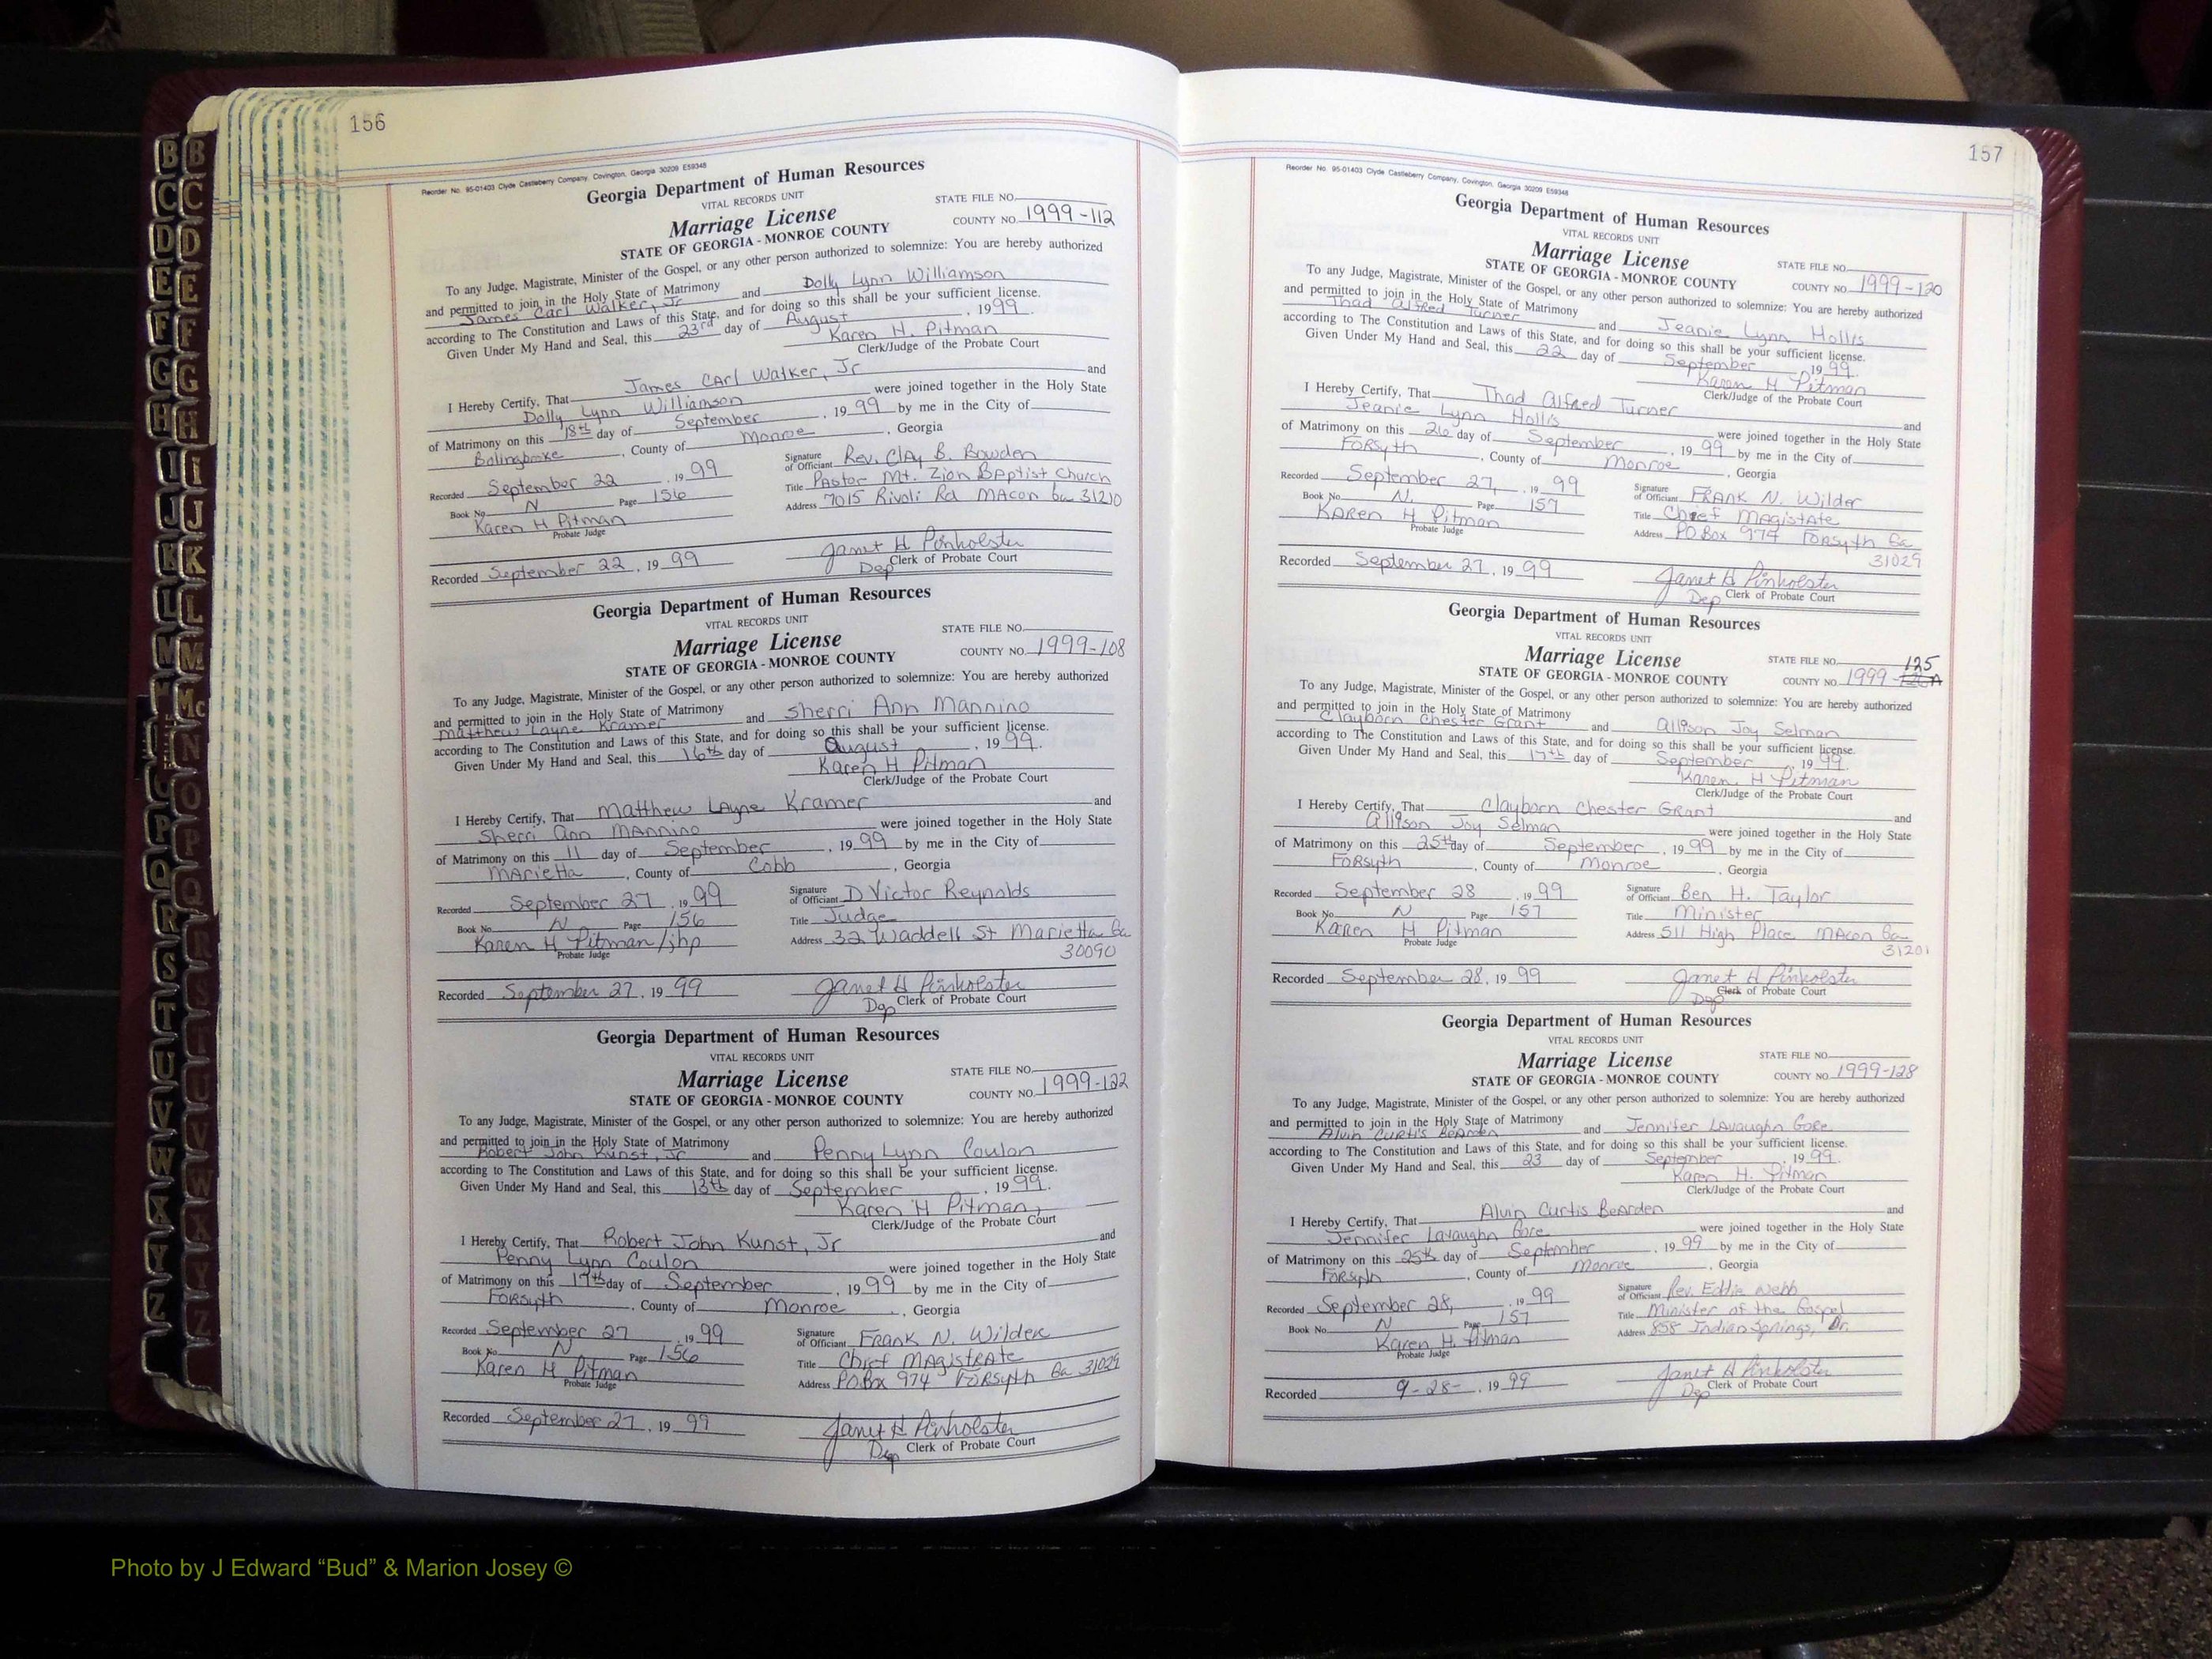 156
Reorder No. 95-01403 Clyde Castleberry Company, Covington, Georgia 30209 E59348
Georgia Department of Human Resources
VITAL RECORDS UNIT
Marriage License
STATE OF GEORGIA - MONROE COUNTY
STATE FILE NO.
COUNTY NO. 1999-112
To any Judge, Magistrate, Minister of the Gospel, or any other person authorized to solemnize: You are hereby authorized
and permitted to join in the Holy State of Matrimony
James Carl Walker, Jr and Dolly Lynn Williamson
according to The Constitution and Laws of this State, and for doing so this shall be your sufficient license.
Given Under My Hand and Seal, this 23rd day of August, 1999.
Karen H. Pitman
Clerk/Judge of the Probate Court
I Hereby Certify, That James Carl Walker, Jr and
Dolly Lynn Williamson were joined together in the Holy State
of Matrimony on this 18th day of September, 1999 by me in the City of
Bolingbroke, County of Monroe, Georgia
Recorded September 22, 1999
Book No. N Page 156
Karen H Pitman
Probate Judge
Signature of Officiant Rev. Clay B. Bowden
Title Pastor Mt. Zion Baptist Church
Address 7015 Rivoli Rd Macon Ga 31210
Recorded September 22, 1999
Janet H Pinholster
Dep Clerk of Probate Court
Georgia Department of Human Resources
VITAL RECORDS UNIT
Marriage License
STATE OF GEORGIA - MONROE COUNTY
STATE FILE NO.
COUNTY NO. 1999-108
To any Judge, Magistrate, Minister of the Gospel, or any other person authorized to solemnize: You are hereby authorized
and permitted to join in the Holy State of Matrimony
Matthew Layne Kramer and Sherri Ann Mannino
according to The Constitution and Laws of this State, and for doing so this shall be your sufficient license.
Given Under My Hand and Seal, this 16th day of August, 1999.
Karen H Pitman
Clerk/Judge of the Probate Court
I Hereby Certify, That Matthew Layne Kramer and
Sherri Ann Mannino were joined together in the Holy State
of Matrimony on this 11 day of September, 1999 by me in the City of
Marietta, County of Cobb, Georgia
Recorded September 27, 1999
Book No. N Page 156
Karen H Pitman/jhp
Probate Judge
Signature of Officiant D Victor Reynolds
Title Judge
Address 32 Waddell St Marietta Ga
30090
Recorded September 27, 1999
Janet H Pinholster
Dep Clerk of Probate Court
Georgia Department of Human Resources
VITAL RECORDS UNIT
Marriage License
STATE OF GEORGIA - MONROE COUNTY
STATE FILE NO.
COUNTY NO. 1999-122
To any Judge, Magistrate, Minister of the Gospel, or any other person authorized to solemnize: You are hereby authorized
and permitted to join in the Holy State of Matrimony
Robert John Kunst, Jr and Penny Lynn Coulon
according to The Constitution and Laws of this State, and for doing so this shall be your sufficient license.
Given Under My Hand and Seal, this 13th day of September, 1999.
Karen H Pitman
Clerk/Judge of the Probate Court
I Hereby Certify, That Robert John Kunst, Jr and
Penny Lynn Coulon were joined together in the Holy State
of Matrimony on this 17th day of September, 1999 by me in the City of
Forsyth, County of Monroe, Georgia
Recorded September 27, 1999
Book No. N Page 156
Karen H Pitman
Probate Judge
Signature of Officiant Frank N. Wilder
Title Chief Magistrate
Address P.O. Box 974 Forsyth Ga 31029
Recorded September 27, 1999
Janet H Pinholster
Dep Clerk of Probate Court
157
Reorder No. 95-01403 Clyde Castleberry Company, Covington, Georgia 30209 E59348
Georgia Department of Human Resources
VITAL RECORDS UNIT
Marriage License
STATE OF GEORGIA - MONROE COUNTY
STATE FILE NO.
COUNTY NO. 1999-130
To any Judge, Magistrate, Minister of the Gospel, or any other person authorized to solemnize: You are hereby authorized
and permitted to join in the Holy State of Matrimony
Thad Alfred Turner and Jeanie Lynn Hollis
according to The Constitution and Laws of this State, and for doing so this shall be your sufficient license.
Given Under My Hand and Seal, this 22 day of September, 1999.
Karen H Pitman
Clerk/Judge of the Probate Court
I Hereby Certify, That Thad Alfred Turner and
Jeanie Lynn Hollis were joined together in the Holy State
of Matrimony on this 26 day of September, 1999 by me in the City of
Forsyth, County of Monroe, Georgia
Recorded September 27, 1999
Book No. N. Page 157
Karen H Pitman
Probate Judge
Signature of Officiant Frank N. Wilder
Title Chief Magistrate
Address PO Box 974 Forsyth Ga
31029
Recorded September 27, 1999
Janet H Pinholster
Dep Clerk of Probate Court
Georgia Department of Human Resources
VITAL RECORDS UNIT
Marriage License
STATE OF GEORGIA - MONROE COUNTY
STATE FILE NO.
125
COUNTY NO. 1999-
To any Judge, Magistrate, Minister of the Gospel, or any other person authorized to solemnize: You are hereby authorized
and permitted to join in the Holy State of Matrimony
Clayborn Chester Grant and Allison Joy Selman
according to The Constitution and Laws of this State, and for doing so this shall be your sufficient license.
Given Under My Hand and Seal, this 17th day of September, 1999.
Karen H Pitman
Clerk/Judge of the Probate Court
I Hereby Certify, That Clayborn Chester Grant and
Allison Joy Selman were joined together in the Holy State
of Matrimony on this 25th day of September, 1999 by me in the City of
Forsyth, County of Monroe, Georgia
Recorded September 28, 1999
Book No. N Page 157
Karen H Pitman
Probate Judge
Signature of Officiant Ben H. Taylor
Title Minister
Address 511 High Place Macon Ga
31201
Recorded September 28, 1999
Janet H Pinholster
Dep Clerk of Probate Court
Georgia Department of Human Resources
VITAL RECORDS UNIT
Marriage License
STATE OF GEORGIA - MONROE COUNTY
STATE FILE NO.
COUNTY NO. 1999-128
To any Judge, Magistrate, Minister of the Gospel, or any other person authorized to solemnize: You are hereby authorized
and permitted to join in the Holy State of Matrimony
Alvin Curtis Bearden and Jennifer Lavaughn Gore
according to The Constitution and Laws of this State, and for doing so this shall be your sufficient license.
Given Under My Hand and Seal, this 23 day of September, 1999.
Karen H. Pitman
Clerk/Judge of the Probate Court
I Hereby Certify, That Alvin Curtis Bearden and
Jennifer Lavaughn Gore were joined together in the Holy State
of Matrimony on this 25th day of September, 1999 by me in the City of
Forsyth, County of Monroe, Georgia
Recorded September 28, 1999
Book No. N Page 157
Karen H. Pitman
Probate Judge
Signature of Officiant Rev. Eddie Webb
Title Minister of the Gospel
Address 858 Indian Springs, Dr.
Recorded 9-28-, 1999
Janet H Pinholster
Dep Clerk of Probate Court
B B
C C
D D
E E
F F
G G
H H
I I
J J
K K
L L
M M
Mc
N
O
P P
Q Q
R R
S S
T T
U U
V V
W W
X X
Y Y
Z Z
Photo by J Edward “Bud” & Marion Josey ©